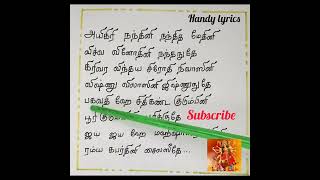 Handy lyrics
அயிகிரி நந்தினி நந்தித மேதினி
விச்வ வினோதினி நந்தநுதே
கிரிவர விந்த்ய சிரோதி நிவாஸினி
விஷ்ணு விலாஸினி ஜிஷ்ணுநுதே
பகவதி ஹே சிதிகண்ட குடும்பினி
பூரி
Subscribe
ஜய ஜய ஹே
ரம்ய கபர்தினி சைலஸுதே...